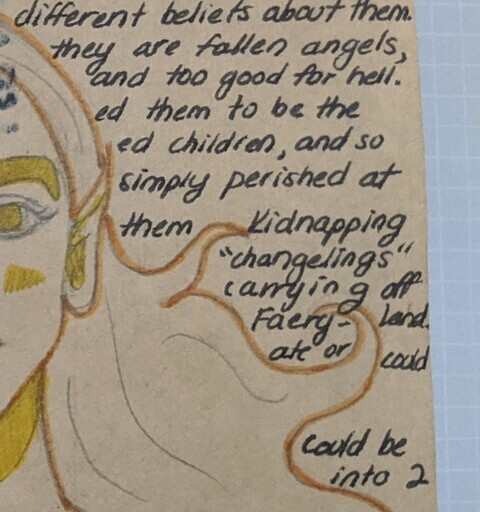 different beliefs about them.
they are fallen angels,
and too good for hell.
ed them to be the
ed children, and so
simply perished at
them Kidnapping
"changelings"
carrying off
Faery- land.
ate or could
could be
into 2